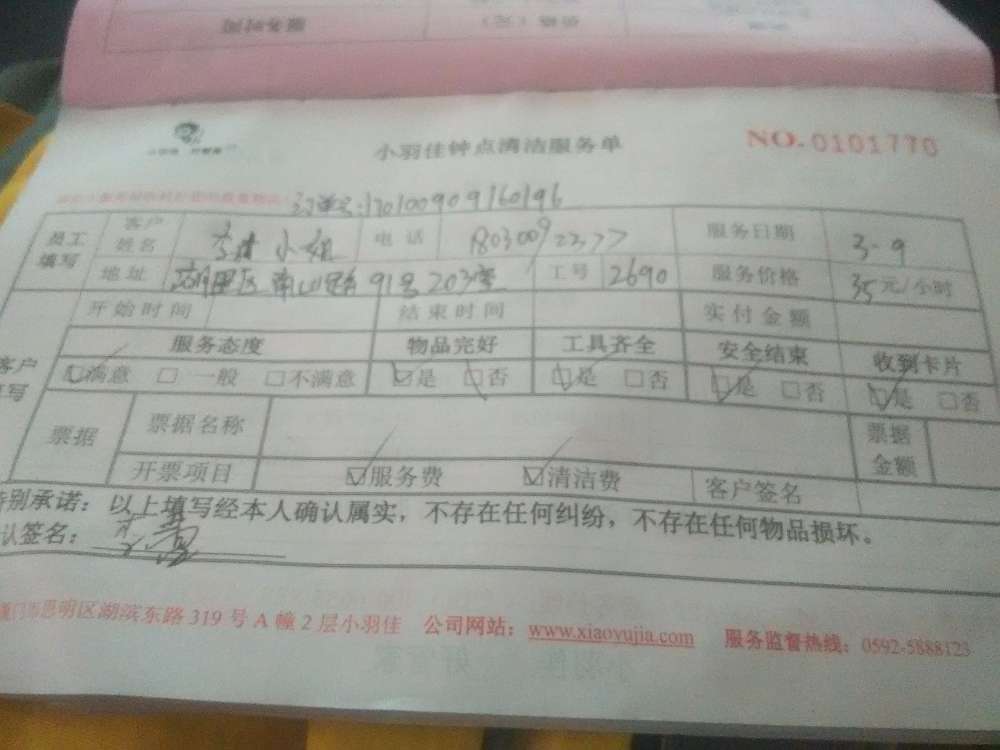 服务时间
小羽佳钟点清洁服务单
NO.0101770
订单号:170100909160196
员工填写 客户姓名 李 小姐 电话 18030092277 服务日期 3-9
地址 湖里区南山路91号203室 工号 2690 服务价格 35元/小时
开始时间 结束时间 实付金额
服务态度 物品完好 工具齐全 安全结束 收到卡片
☑满意 □一般 □不满意 ☑是 □否 ☑是 □否 ☑是 □否 ☑是 □否
票据 票据名称 票据金额
开票项目 ☑服务费 ☑清洁费 客户签名
特别承诺：以上填写经本人确认属实，不存在任何纠纷，不存在任何物品损坏。
认签名：
厦门市思明区湖滨东路319号A幢2层小羽佳 公司网站：www.xiaoyujia.com 服务监督热线：0592-5888123